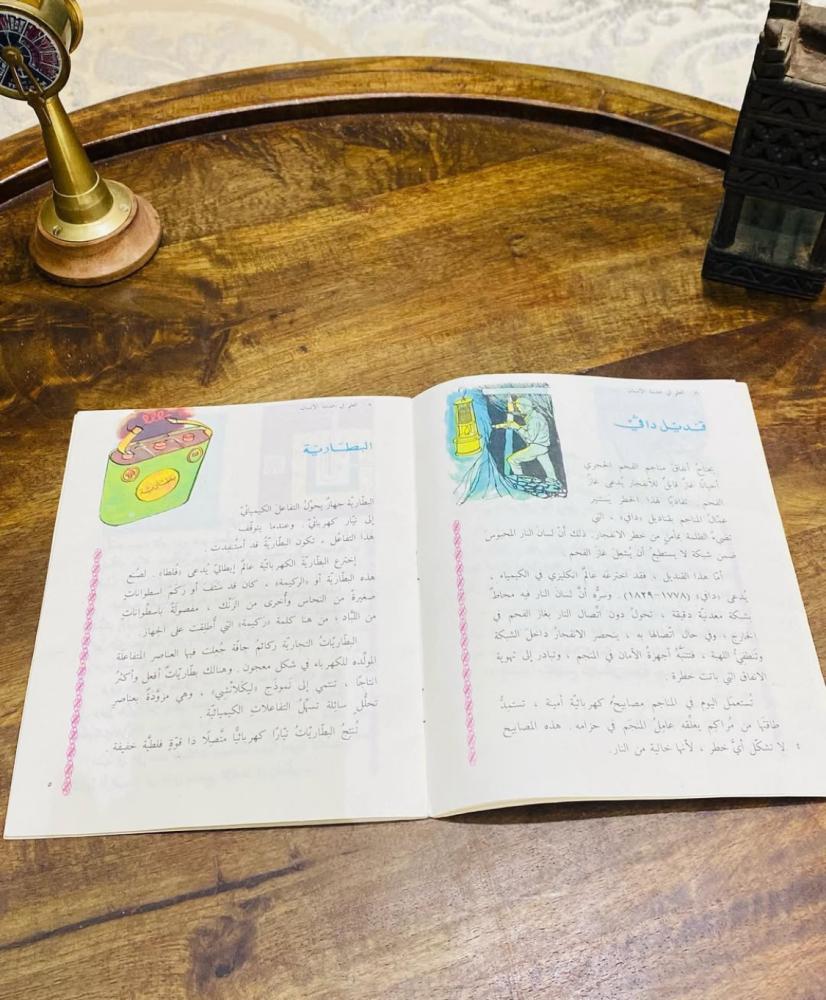 ٤ العلم في خدمة الانسان
قنديل دافي
يجتاحُ أنفاقَ مناجمِ الفحمِ الحجري
أحيانًا غازٌ قابلٌ للأنفجار يُدعى غازُ
الفحم. تفاديًا لهذا الخطر يستنير
عمّالُ المناجم بقناديل «دافي» ، التي
تضيءُ الظلمةَ بمأمنٍ من خطر الانفجار. ذلك أنّ لسانَ النار المحبوسَ
ضمن شبكة لا يستطيعُ أن يُشعلَ غازَ الفحم.
أمّا هذا القنديل ، فقد اخترعه عالمٌ انكليزي في الكيمياء ،
يُدعى «دافي» (١٧٧٨–١٨٢٩). وسرُّه أنّ لسانَ النار فيه محاطٌ
بشبكة معدنيّة دقيقة ، تحولُ دون اتّصال النار بغاز الفحم في
الخارج ؛ وفي حال اتّصالها به ، ينحصر الانفجارُ داخلَ الشبكة
وتنطفئُ اللهبة ، فتتنبَّهُ أجهزةُ الأمان في المنجم ، وتبادر إلى تهوية
الانفاق التي باتت خطرة.
تُستعملُ اليوم في المناجم مصابيحُ كهربائيّة أمينة ، تستمدُّ
طاقتها من مُراكِمٍ يعلّقه عاملُ المنجَم في حزامه. هذه المصابيح
لا تشكّل أيَّ خطر ، لأنها خالية من النار.
٤
٥ العلم في خدمة الانسان
البطّاريّة
بطّاريّة
البطّاريّة جهازٌ يحوّلُ التفاعلَ الكيميائيّ
إلى تيّار كهربائيّ. وعندما يتوقّف
هذا التفاعُل ، تكون البطّاريّةُ قد اُستُنفِدت.
إخترع البطّاريّةَ الكهربائيّة عالمٌ إيطاليّ يُدعى «فُلطا». لصُنع
هذه البطّاريّة أو «الركيمة» ، كان قد ستَّف أو رَكَمَ اسطوانات
صغيرةً من النحاس وأُخرى من الزنك ، مفصولةً باسطوانات
من اللبّاد ، من هنا كلمة «ركيمة» التي أُطلِقت على الجهاز.
البطّاريّات التجاريّة ركائمُ جافّة جُعلت فيها العناصر المتفاعلة
المولّدة للكهرباء في شكل معجون. وهنالك بطّاريّاتٌ أفعل وأكثرُ
انتاجًا ، تنتمي إلى نَموذج «ليكلانشي» ، وهي مزوّدةٌ بعناصرِ
تحلّلٍ سائلة تسهّل التفاعلات الكيميائيّة.
تُنتِجُ البطّاريّاتُ تيّارًا كهربائيًّا متّصِلًا ذا قوّةٍ فلطيّة خفيفة.
٥